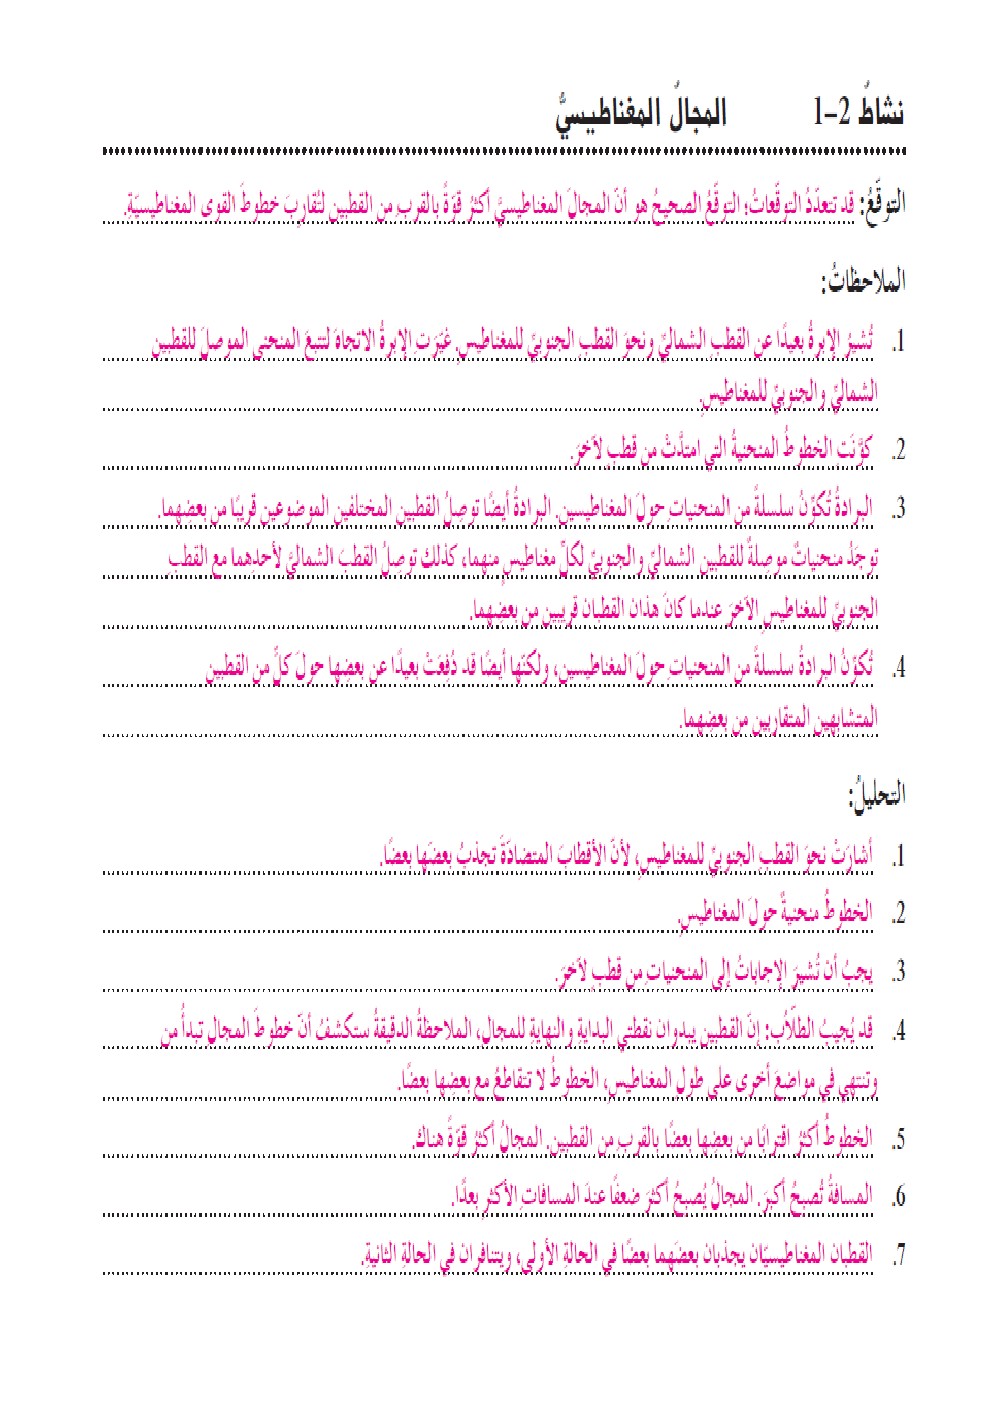 نشاطٌ 2–1 المجالُ المغناطيسيُّ
التوقّعُ: قد تتعدّدُ التوقّعاتُ؛ التوقّعُ الصحيحُ هو أنّ المجالَ المغناطيسيَّ أكثرُ قوّةً بالقربِ من القطبين لتُقارِبَ خطوطَ القوى المغناطيسيّةِ.
الملاحظاتُ:
1. تُشيرُ الإبرةُ بعيدًا عن القطبِ الشماليِّ ونحوَ القطبِ الجنوبيِّ للمغناطيسِ. غيّرَتِ الإبرةُ الاتجاهَ لتتبعَ المنحنى الموصلَ للقطبين
الشماليِّ والجنوبيِّ للمغناطيسِ.
2. كوّنَتِ الخطوطُ المنحنيةُ التي امتدَّتْ من قطبٍ لآخرَ.
3. البرادةُ تُكوّنُ سلسلةً من المنحنياتِ حولَ المغناطيسين. البرادةُ أيضًا توصِلُ القطبين المختلفين الموضوعين قريبًا من بعضِهما.
توجَدُ منحنياتٌ موصِلةٌ للقطبين الشماليِّ والجنوبيِّ لكلِّ مغناطيسٍ منهما، كذلك توصِلُ القطبَ الشماليَّ لأحدِهما مع القطبِ
الجنوبيِّ للمغناطيسِ الآخرَ عندما كانَ هذان القطبان قريبين من بعضِهما.
4. تُكوّنُ البرادةُ سلسلةً من المنحنياتِ حولَ المغناطيسين، ولكنّها أيضًا قد دُفِعَتْ بعيدًا عن بعضِها حولَ كلٍّ من القطبين
المتشابهين المتقاربين من بعضِهما.
التحليلُ:
1. أشارَتْ نحوَ القطبِ الجنوبيِّ للمغناطيسِ، لأنّ الأقطابَ المتضادّةَ تجذبُ بعضَها بعضًا.
2. الخطوطُ منحنيةٌ حولَ المغناطيسِ.
3. يجبُ أن تُشيرَ الإجاباتُ إلى المنحنياتِ من قطبٍ لآخرَ.
4. قد يُجيبُ الطلّابُ: إنّ القطبين يبدوان نقطتي البدايةِ والنهايةِ للمجال، الملاحظةُ الدقيقةُ ستكشفُ أنّ خطوطَ المجال تبدأُ من
وتنتهي في مواضعَ أخرى على طول المغناطيسِ، الخطوطُ لا تتقاطعُ مع بعضِها بعضًا.
5. الخطوطُ أكثرُ اقترابًا من بعضِها بعضًا بالقربِ من القطبين. المجالُ أكثرُ قوّةً هناك.
6. المسافةُ تُصبحُ أكبرَ. المجالُ يُصبحُ أكثرَ ضعفًا عندَ المسافاتِ الأكثرِ بعدًا.
7. القطبان المغناطيسيّان يجذبان بعضَهما بعضًا في الحالةِ الأولى، ويتنافران في الحالةِ الثانيةِ.